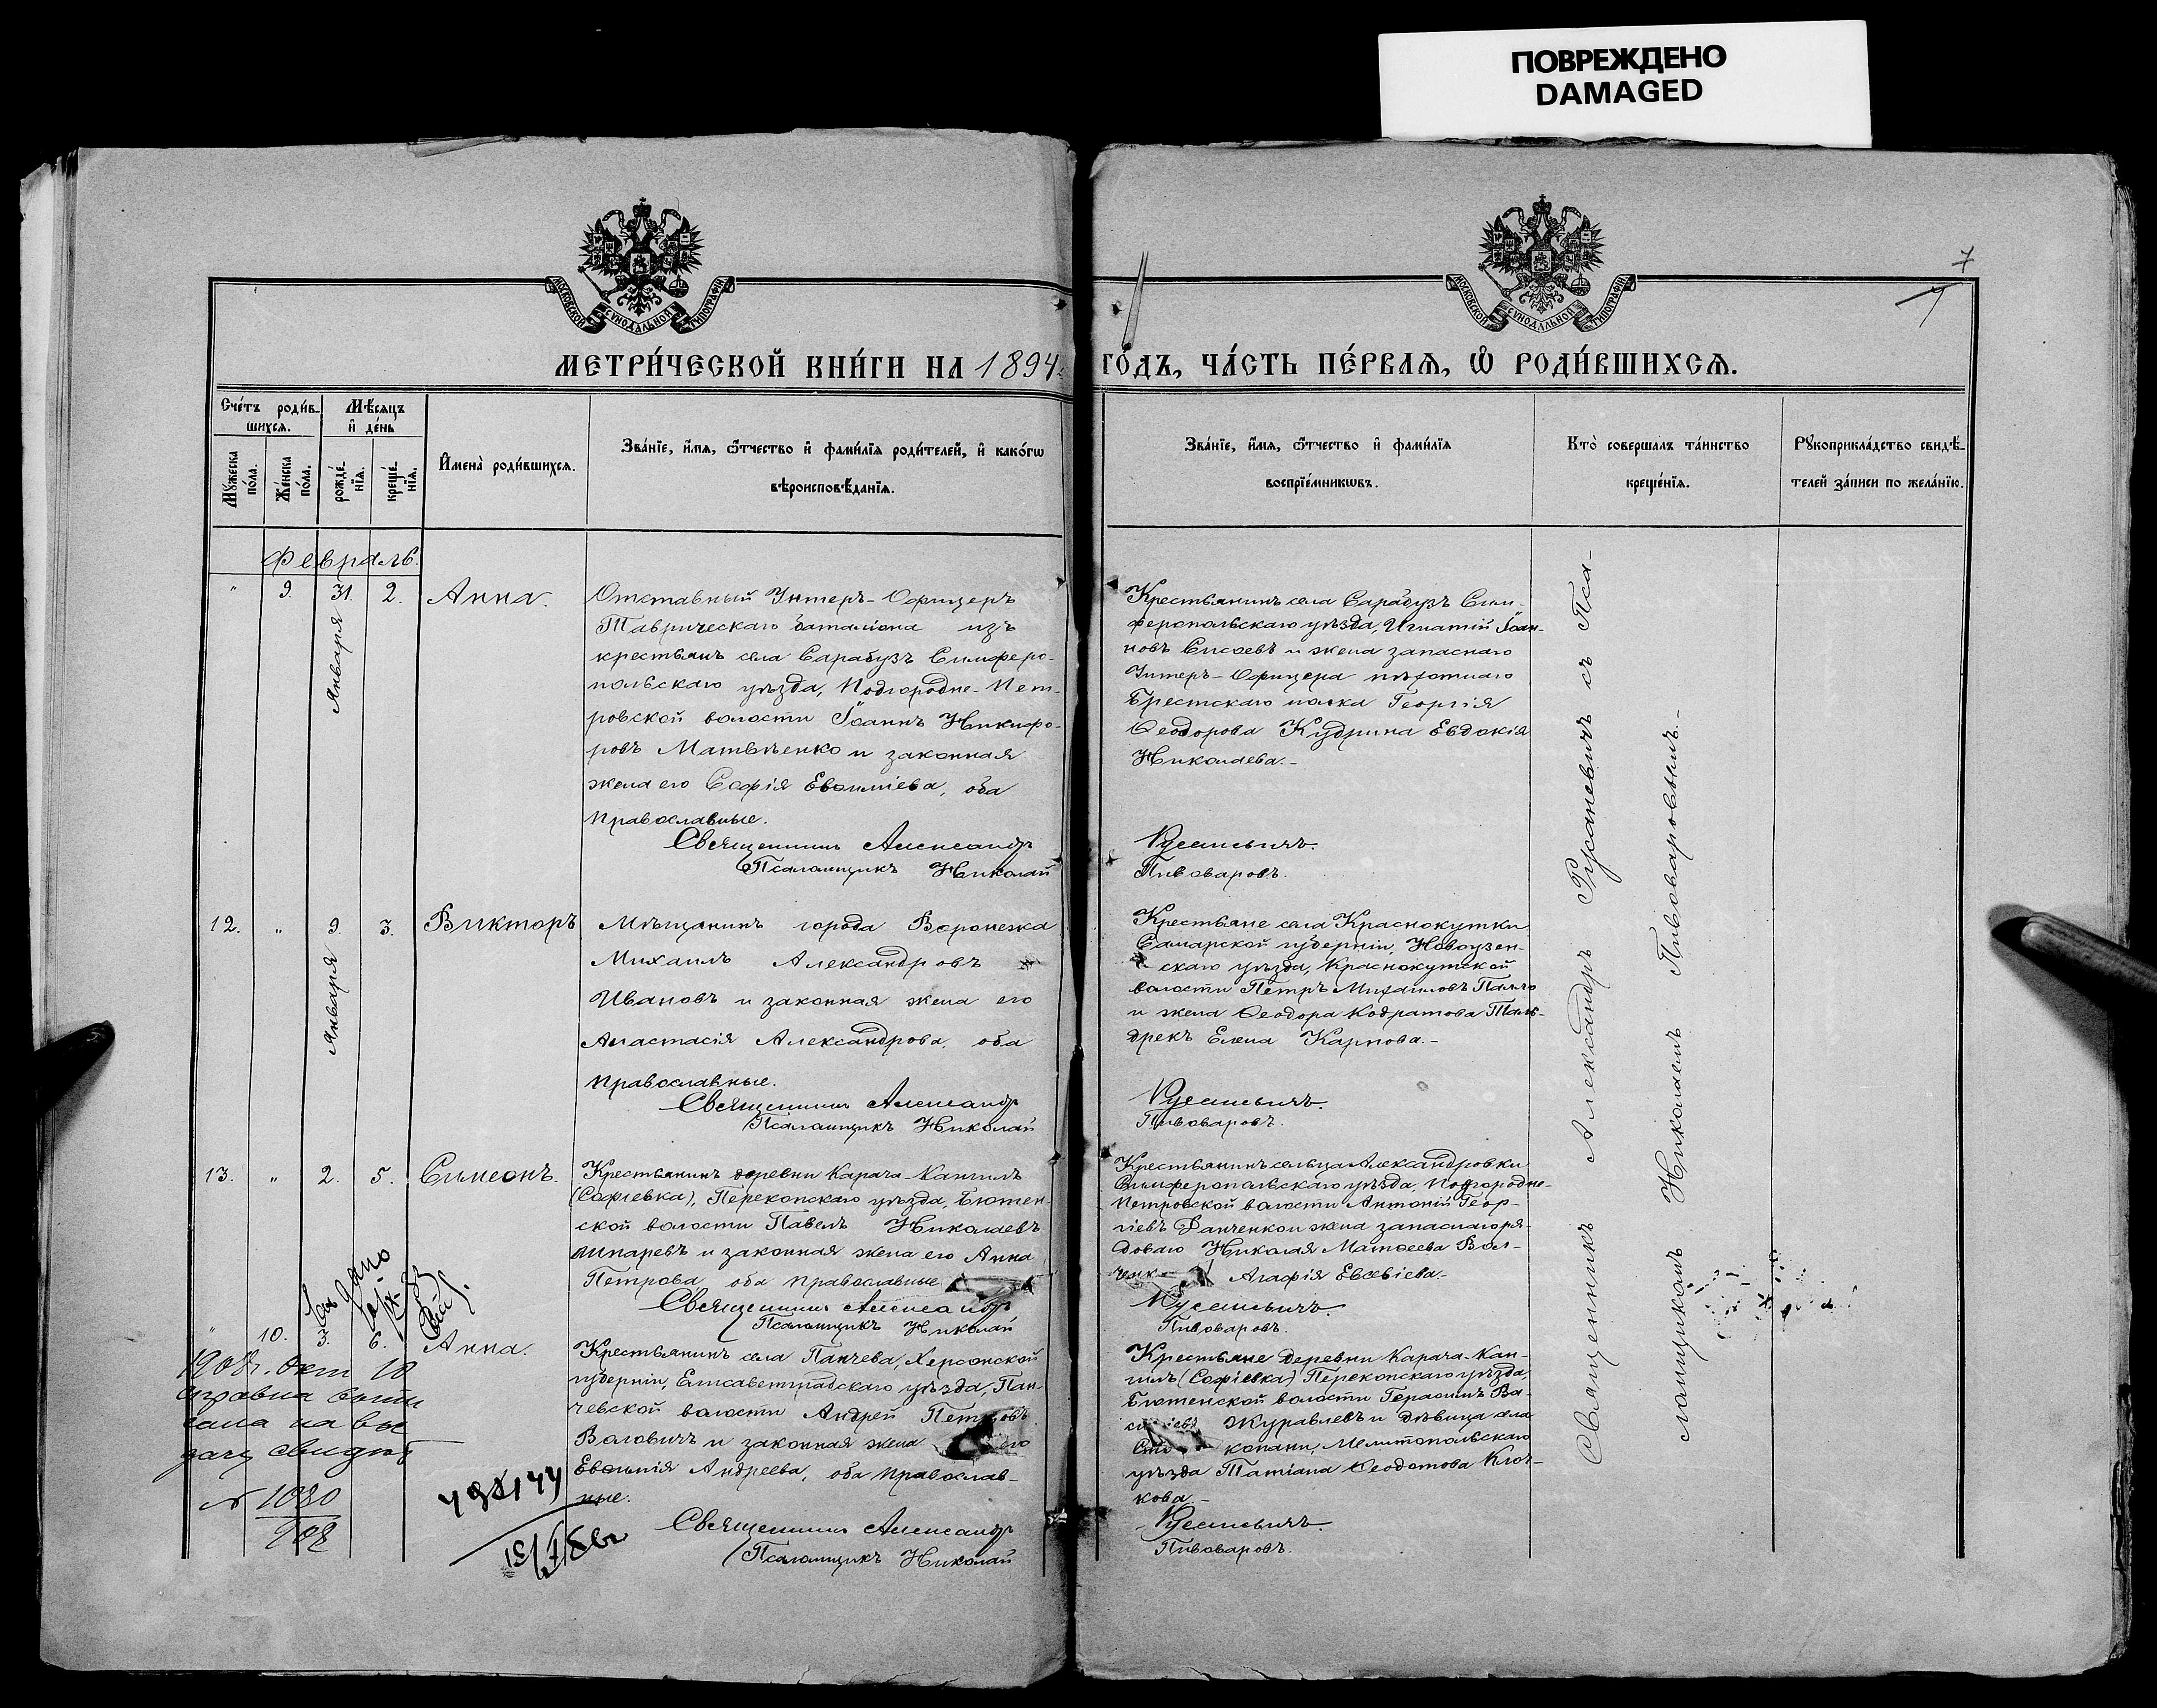 ПОВРЕЖДЕНО
DAMAGED
МОСКОВСКОЙ СУНОДАЛЬНОЙ ТИПОГРАФІИ
МОСКОВСКОЙ СУНОДАЛЬНОЙ ТИПОГРАФІИ
7
7
МЕТРИ́ЧЕСКОЙ КНИ́ГИ НА 1894
ГО́ДЪ, ЧА́СТЬ ПЕ́РВАѦ, Ѡ҆ РОДИ́ВШИХСѦ.
Сче́тъ роди́в-
шихсѧ.
Мѣ́сяцъ
и҆ де́нь
Му́жеска
по́ла.
Же́нска
по́ла.
рожде́-
нїѧ.
креще́-
нїѧ.
И҆мена̀ роди́вшихсѧ.
Зва́нїе, и҆́мѧ, ѻ҆́тчество и҆ фами́лїѧ роди́телей, и҆ како́гѡ
вѣроисповѣ́данїѧ.
Зва́нїе, и҆́мѧ, ѻ҆́тчество и҆ фами́лїѧ
воспрїе́мникѡвъ.
Кто̀ соверша́лъ та́инство
креще́нїѧ.
Рꙋкоприкла́дство свидѣ́-
телей за́писи по жела́нїю.
Февраль.
" 9. 31. 2. Анна.
Января
Отставный Унтеръ-Офицеръ
Таврическаго баталіона изъ
крестьянъ села Сарабузъ Симферо-
польскаго уѣзда, Подгородне-Пет-
ровской волости Іоаннъ Никифо-
ровъ Матвѣенко и законная
жена его Софія Евѳиміева, оба
православные.
Священникъ Александръ
Псаломщикъ Николай
Крестьянинъ села Сарабузъ Сим-
феропольскаго уѣзда, Игнатій Іоан-
новъ Сисоевъ и жена запаснаго
Унтеръ-Офицера пѣхотнаго
Брестскаго полка Георгія
Ѳеодорова Кудрина Евдокія
Николаева.-
Русаневичъ.
Пивоваровъ.
12. " 9. 3. Викторъ
Января
Мѣщанинъ города Воронежа
Михаилъ Александровъ
Ивановъ и законная жена его
Анастасія Александрова, оба
православные.
Священникъ Александръ
Псаломщикъ Николай
Крестьяне села Краснокутки
Самарской губерніи, Новоузен-
скаго уѣзда, Краснокутской
волости Петръ Михаиловъ
и жена Ѳеодора Кодратова
дрекъ Елена Карпова.-
Русаневичъ.
Пивоваровъ.
13. " 2. 5. Симеонъ.
Крестьянинъ деревни Карача-Кангилъ
(Софіевка), Перекопскаго уѣзда, Бютен-
ской волости Павелъ Николаевъ
и законная жена его Анна
Петрова, оба православные
Священникъ Александръ
Псаломщикъ Николай
Крестьянинъ сельца Александровки
Симферопольскаго уѣзда, Подгородне-
Петровской волости Антоній Геор-
гіевъ Фанченко и жена запаснаго ря-
доваго Николая Матѳеева Вол-
ченк Агафія Евсевіева.-
Русаневичъ.
Пивоваровъ.
" 10. 3. 6. Анна.
Крестьянинъ села Панчева, Херсонской
губерніи, Елисаветградскаго уѣзда, Пан-
чевской волости Андрей Петровъ
Воловичъ и законная жена его
Евѳимія Андреева, оба православ-
ные.
Священникъ Александръ
Псаломщикъ Николай
Крестьяне деревни Карача-Кан-
гилъ (Софіевка) Перекопскаго уѣзда,
Бютенской волости Герасимъ Ва-
сильевъ Журавлевъ и дѣвица села
копани, Мелитопольскаго
уѣзда Татіана Ѳеодотова Клоч-
кова.-
Русаневичъ.
Пивоваровъ.
Священникъ Александръ Русаневичъ съ Пса-
ломщикомъ Николаемъ Пивоваровымъ.-
1908г. Окт 10
справка
на вы
дачу
№ 1030
908